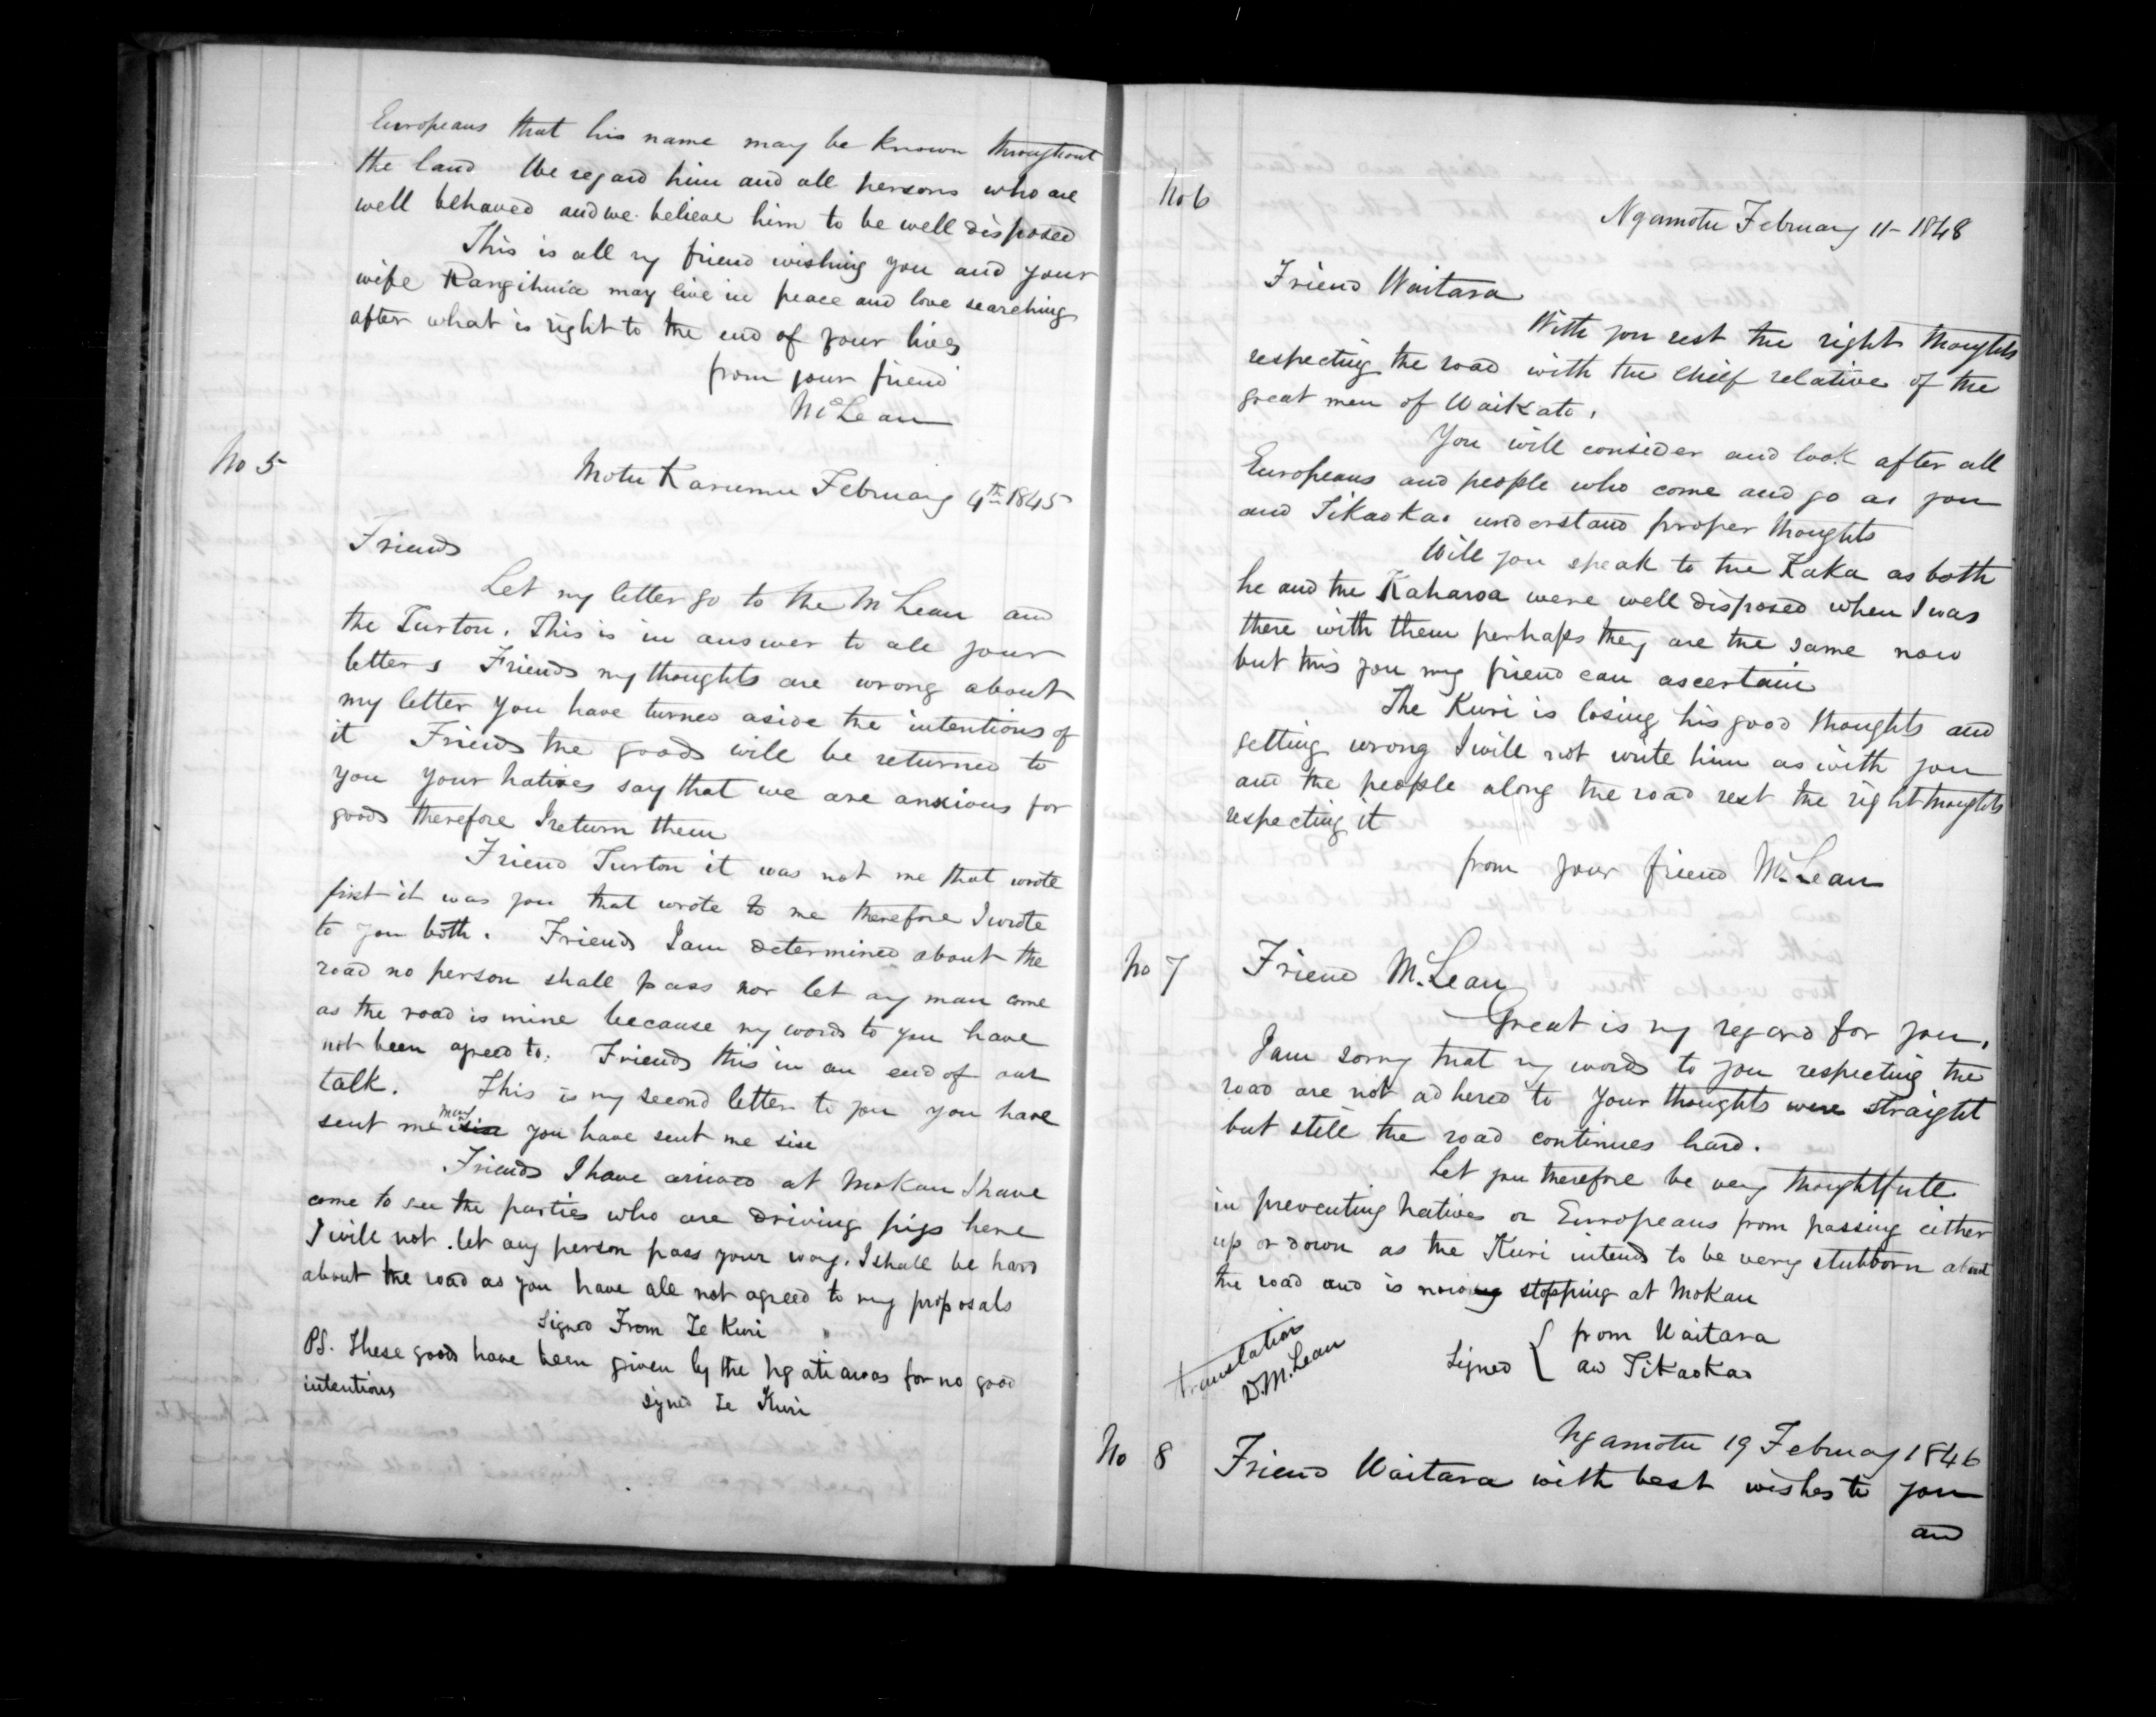 Europeans that his name may be known throughout
the land We regard him and all persons who are
well behaved and we believe him to be well disposed
This is all my friend wishing you and your
wife Rangihuia may live in peace and love searching
after what is right to the end of your lives
from your friend
McLean
No 5
Motu Karumu February 4th 1845
Friends
Let my letter go to the McLean and
the Turton. This is in answer to all your
letters Friends my thoughts are wrong about
my letter you have turned aside the intentions of
it Friends the goods will be returned to
you your natives say that we are anxious for
goods therefore I return them
Friend Turton it was not me that wrote
first it was you that wrote to me therefore I wrote
to you both. Friends I am determined about the
road no person shall pass nor let any man come
as the road is mine because my words to you have
not been agreed to. Friends this in an end of our
talk. This is my second letter to you you have
sent me many you have sent me six
Friends I have arrived at Mokau I have
come to see the parties who are driving pigs here
I will not let any person pass your way. I shall be hard
about the road as you have all not agreed to my proposals
Signed From Te Kuri
PS. These goods have been given by the Ngatiawas for no good
intentions
signed Te Kuri
No 6
Ngamotu February 11- 1848
Friend Waitara
With you rest the right thoughts
respecting the road with the chief relative of the
great men of Waikato.
You will consider and look after all
Europeans and people who come and go as you
and Tikaokao understand proper thoughts
Will you speak to the Kaka as both
he and the Kaharoa were well disposed when I was
there with them perhaps they are the same now
but this you my friend can ascertain
The Kuri is losing his good thoughts and
getting wrong I will not write him as with you
and the people along the road rest the right thoughts
respecting it
from your friend McLean
No 7
Friend McLean
Great is my regard for you,
I am sorry that my words to you respecting the
road are not adhered to Your thoughts were straight
but still the road continues hard.
Let you therefore be very thoughtfull
in preventing Natives or Europeans from passing either
up or down as the Kuri intends to be very stubborn about
the road and is now stopping at Mokau
Signed { from Waitara
an Tikaokao
translation
D. McLean
Ngamotu 19 February 1846
No 8
Friend Waitara with best wishes to you
and